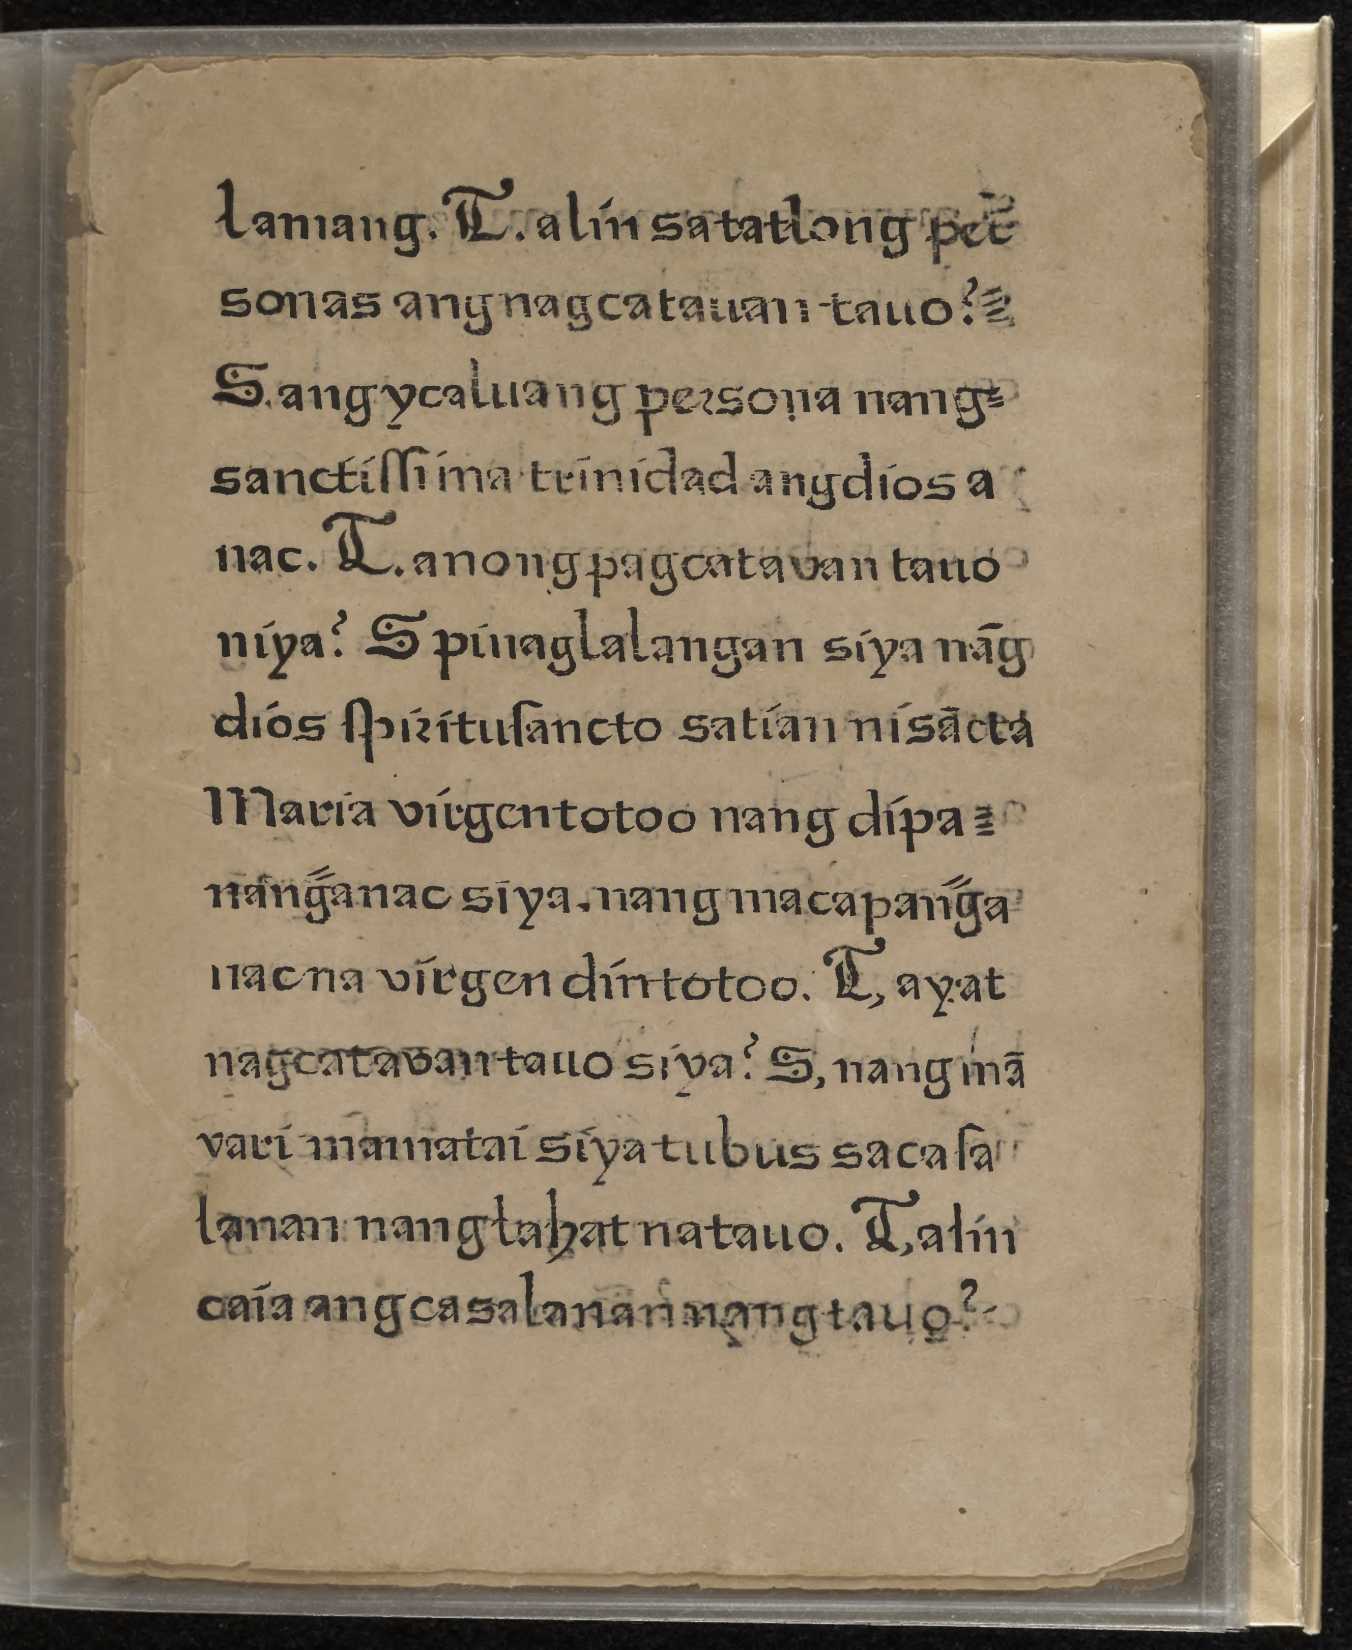 lamang. T. alin sa tatlong per
sonas ang nagcatauan tauo?
S. ang ycaluang persona nang
sanctissima trinidad ang dios a
nac. T. anong pagcatavan tauo
niya? S pinaglalangan siya nãg
dios spiritusancto satian ni sãcta
Maria virgen totoo nang dipa
nang̃anac siya. nang macapang̃a
nac na virgen din totoo. T, ay at
nagcatavan tauo siya? S, nang mã
yari mamatai siya tubus saca sa
lanan nang lahat na tauo. T, alin
caia ang casalanan nang tauo?